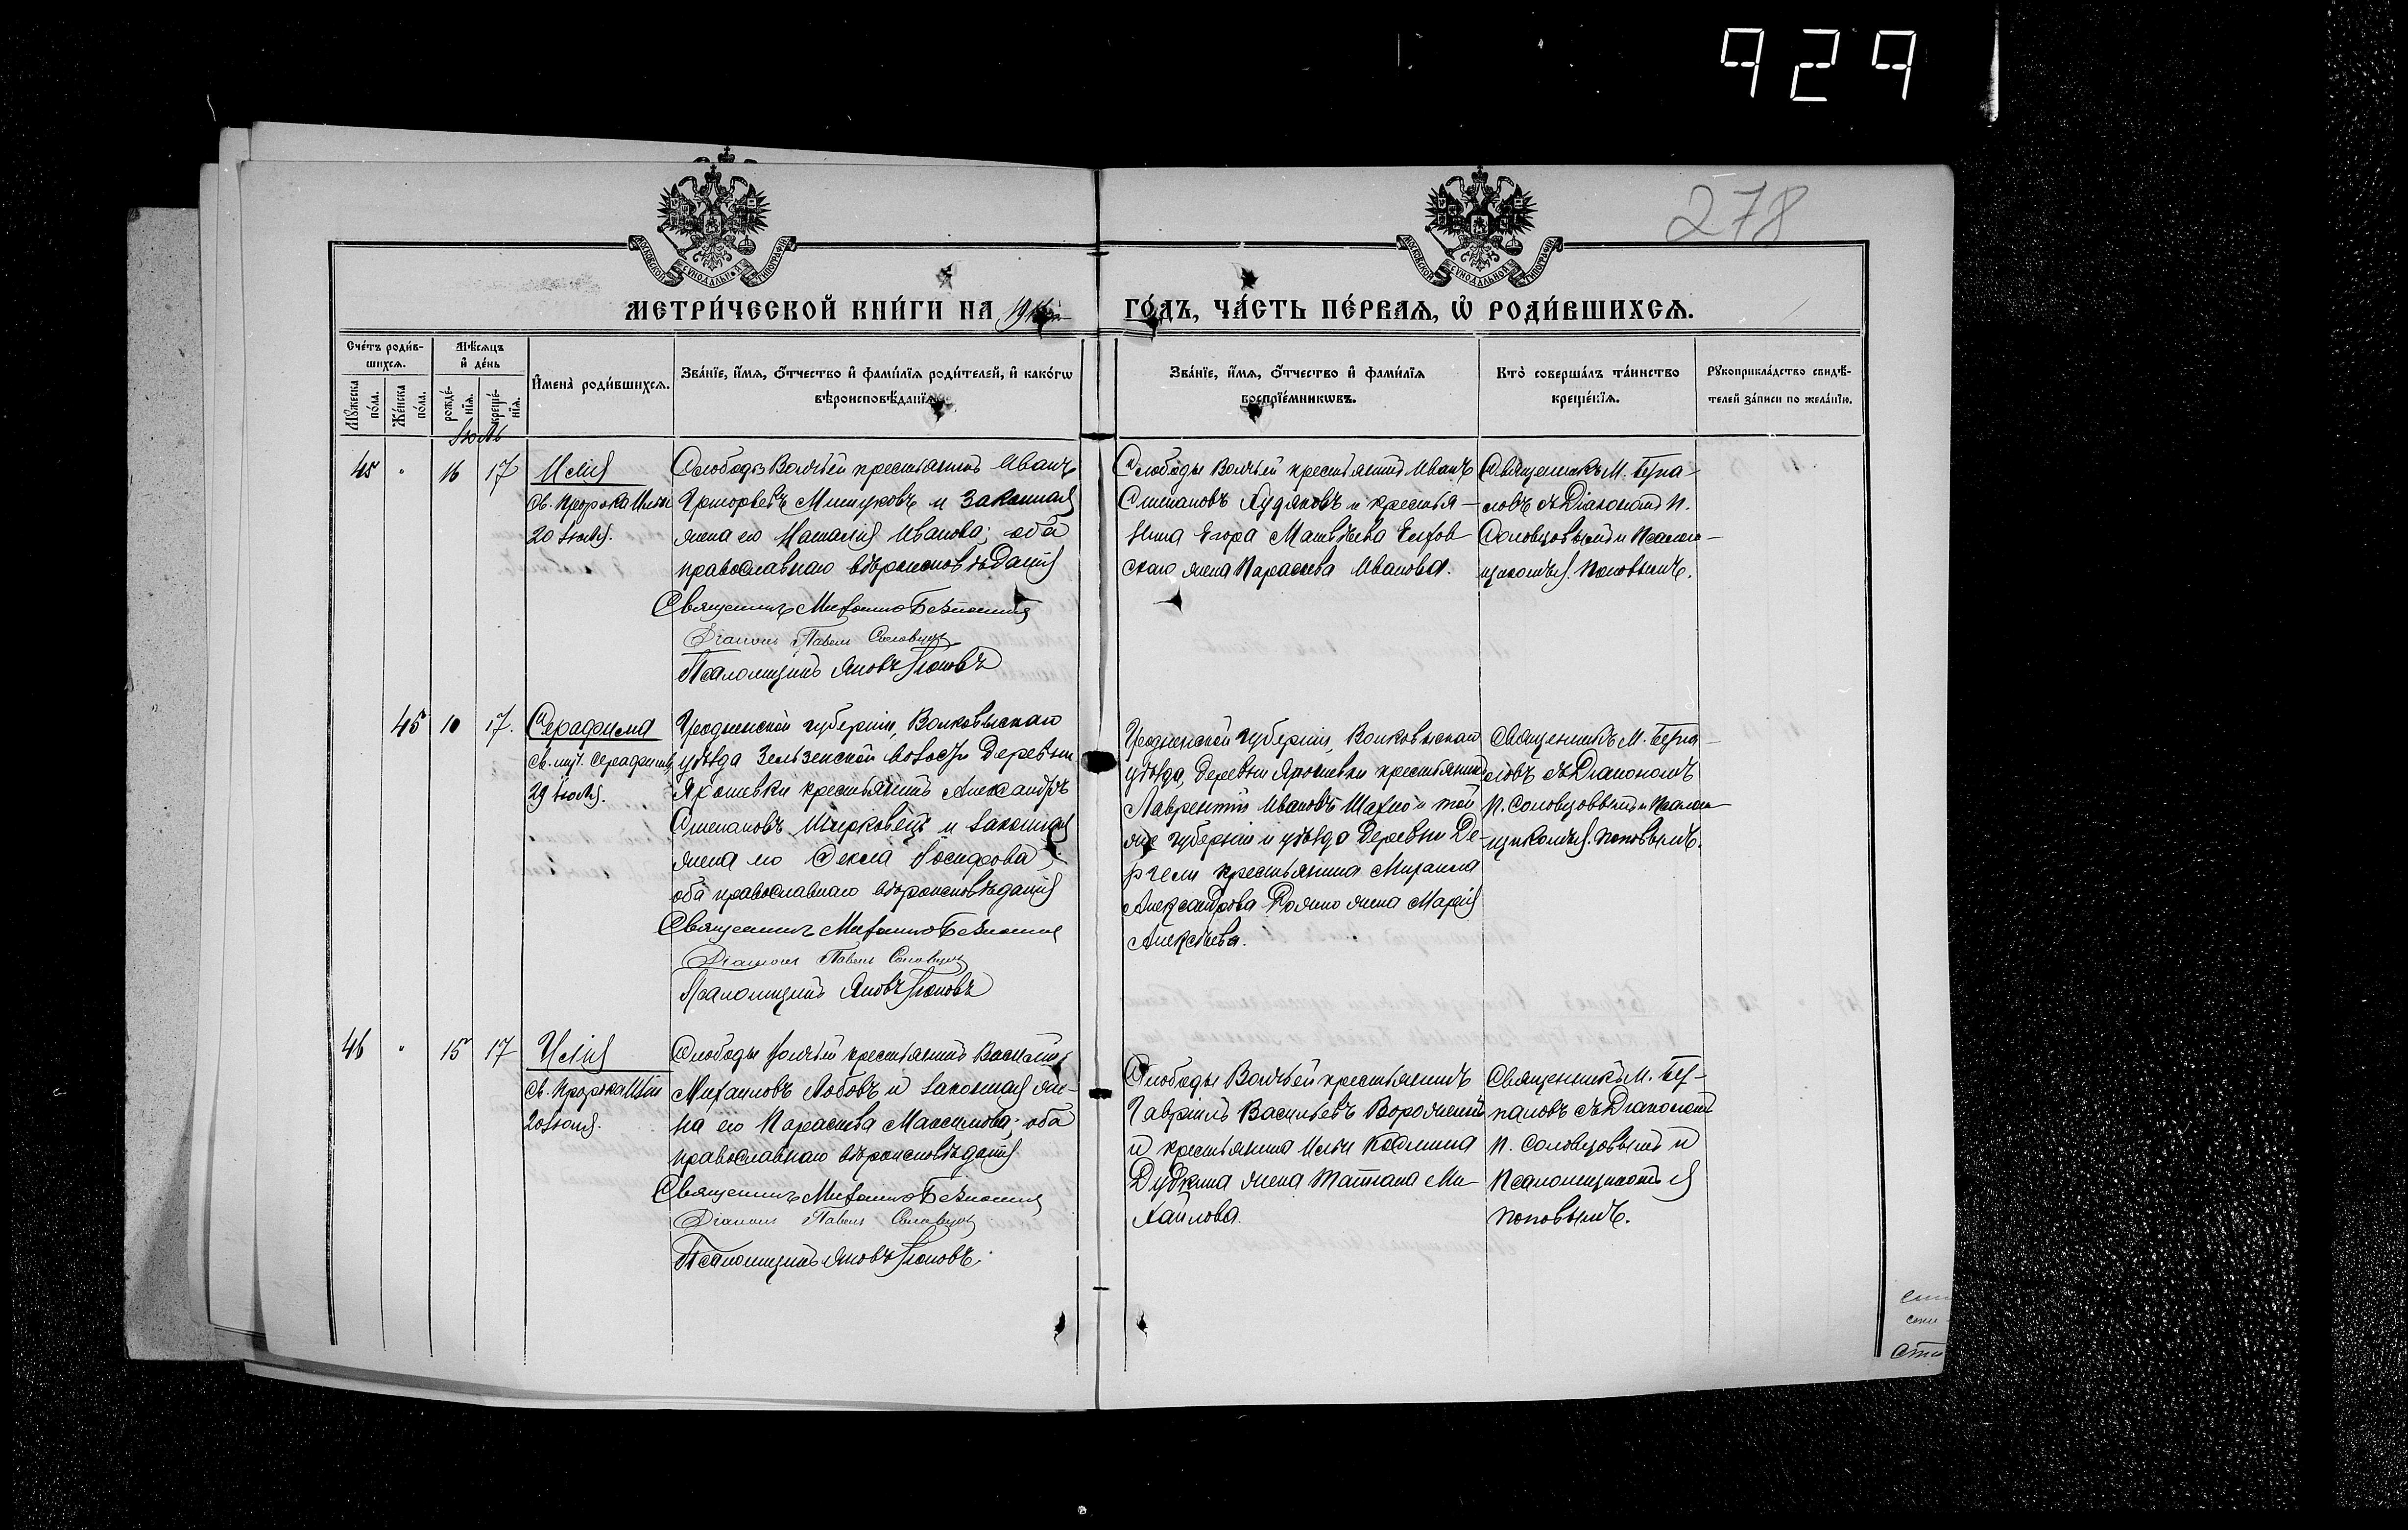 929
278
МОСКОВСКОЙ СѴНОДАЛЬНОЙ ТИПОГРАФІИ
МОСКОВСКОЙ СѴНОДАЛЬНОЙ ТИПОГРАФІИ
МЕТРИ́ЧЕСКОЙ КНИ́ГИ НА 191
ГО́ДЪ, ЧА́СТЬ ПЕ́РВАЯ, Ѡ҆ РОДИ́ВШИХСЯ.
Сче́тъ роди́в-
шихся.
Мꙋ́жеска
по́ла.
Же́нска
по́ла.
Мѣ́сяцъ
и҆ де́нь
рожде́-
нїя.
креще́-
нїя.
И҆мена̀ роди́вшихся.
Зва́нїе, и҆́мя, ѻ҆́тчество и҆ фами́лїя роди́телей, и҆ како́гѡ
вѣроисповѣ́данїя.
Зва́нїе, и҆́мя, ѻ҆́тчество и҆ фами́лїя
воспрїе́мникѡвъ.
Кто̀ соверша́лъ та́инство
креще́нїя.
Рꙋкоприкла́дство свидѣ́-
телей за́писи по жела́нїю.
Іюль
45 " 16 17 Илія
Св. Пророка Иліи
20 Іюля.
Слободы Волчьей крестьянинъ Иванъ
Григорьевъ Мишуковъ и законная
жена его Наталія Иванова; оба
православнаго вѣроисповѣданія
Священникъ Михаилъ
Діаконъ Павелъ Соловцовъ
Псаломщикъ Яковъ Поповъ
Слободы Волчьей крестьянинъ Иванъ
Степановъ Худяковъ и крестья-
нина Егора Матвѣева
жена Параскева Иванова.
Священникъ М.
съ Діакономъ П.
Соловцовымъ и Псалом-
щикомъ Я. Поповымъ.
45 10 17. Серафима
Св. муч. Серафимы
29 Іюля.
Гродненской губерніи, Волковыскаго
уѣзда Зельзенской волости деревни
Ярошевки крестьянинъ Александръ
Степановъ и законная
жена его Фекла Іосифова;
оба православнаго вѣроисповѣданія
Священникъ Михаилъ
Діаконъ Павелъ Соловцовъ
Псаломщикъ Яковъ Поповъ
Гродненской губерніи, Волковыскаго
уѣзда, деревни Ярошевки крестьянинъ
Лаврентій Ивановъ Шахно и той
же губерніи и уѣзда деревни Де-
речели крестьянина Михаила
Александрова жена Марія
Алексѣева.
Священникъ М.
съ Діакономъ
П. Соловцовымъ и Псалом-
щикомъ Я. Поповымъ.
46 " 15 17 Илія
Св. Пророка Иліи
20 Іюля.
Слободы Волчьей крестьянинъ Василій
Михаиловъ Лобовъ и законная же-
на его Параскева Максимова; оба
православнаго вѣроисповѣданія
Священникъ Михаилъ
Діаконъ Павелъ Соловцовъ
Псаломщикъ Яковъ Поповъ.
Слободы Волчьей крестьянинъ
Гавріилъ Васильевъ
и крестьянина Ильи Косьмина
Дудкина жена Татіана Ми-
хайлова.
Священникъ М.
съ Діакономъ
П. Соловцовымъ и
Псаломщикомъ Я
Поповымъ.